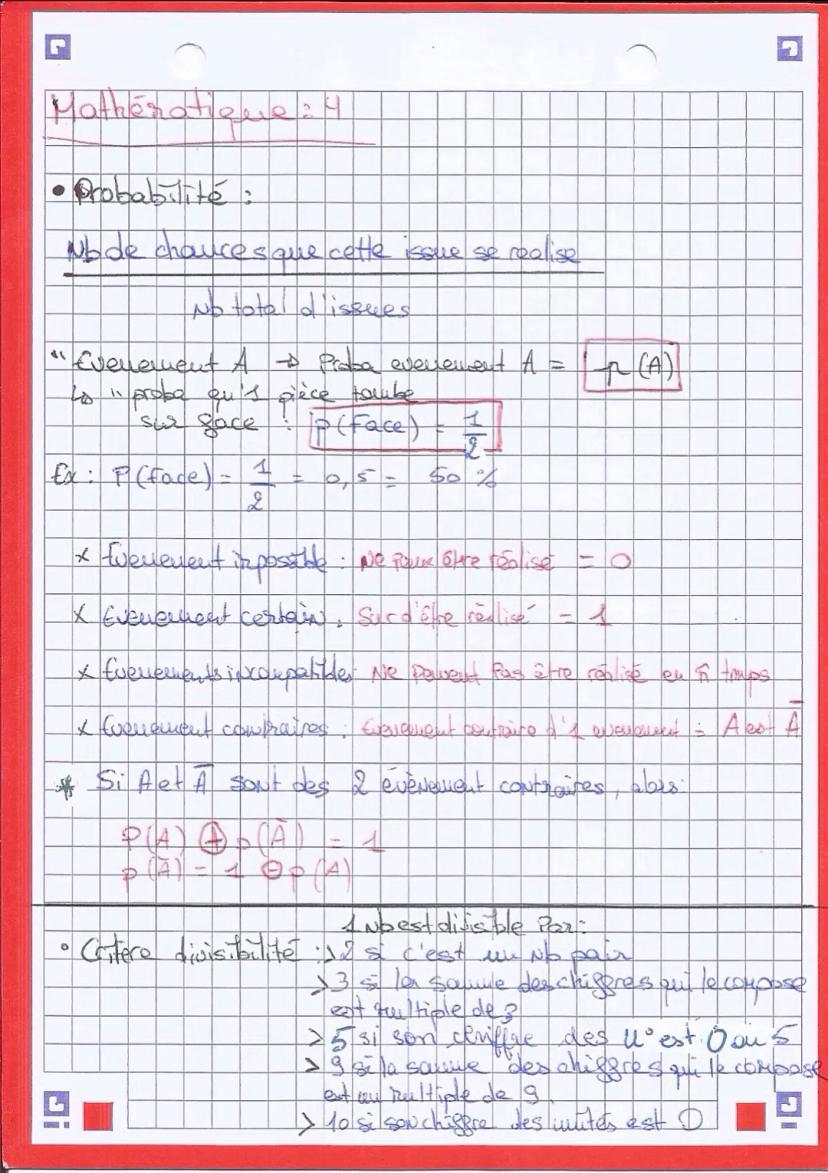 Mathématique : 4
• Probabilité :
Nb de chances que cette issue se realise
Nb total d'issues
" Evenement A → Proba evenement A = p(A)
↳ " proba qu'1 pièce tombe
sur face : p(Face) = 1/2
Ex : P(face) = 1/2 = 0,5 = 50 %
x Evenement impossible : Ne peux être réalisé = 0
x Evenement certain : Sur d'être réalisé = 1
x Evenements incompatibles Ne peuvent Pas être réalisé en m̂ temps
x Evenement contraires : Evenement contraire d'1 evenement = A est Ā
* Si A et Ā sont des 2 évènement contraires, alors
P(A) ⊕ p(Ā) = 1
p(Ā) = 1 ⊖ p(A)
1 Nb est divisible Par :
• Critère divisibilité : > 2 si c'est un Nb pair
> 3 si la somme des chiffres qui le compose
est multiple de 3
> 5 si son chiffre des U° est 0 ou 5
> 9 si la somme des chiffres qui le compose
est un multiple de 9.
> 10 si son chiffre des unités est 0